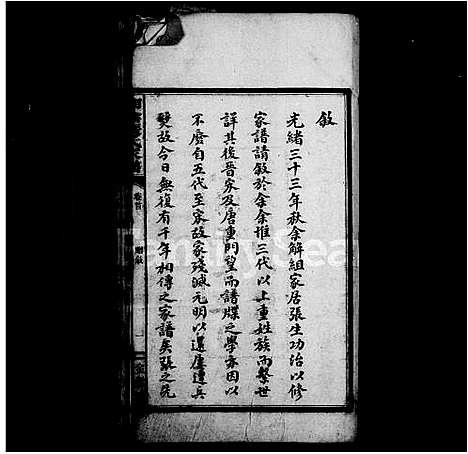 敘
光緒三十三年秋余解組家居張生功治以修
家譜請敘於余余推三代以上重姓族而繫世
詳其後晉宋及唐重門望而譜牒之學亦因以
不廢自五代至宋故家殘滅元明以還屢遭兵
燹故今日無復有千年相傳之家譜矣張之先
卷首
贈敘
FamilySearch